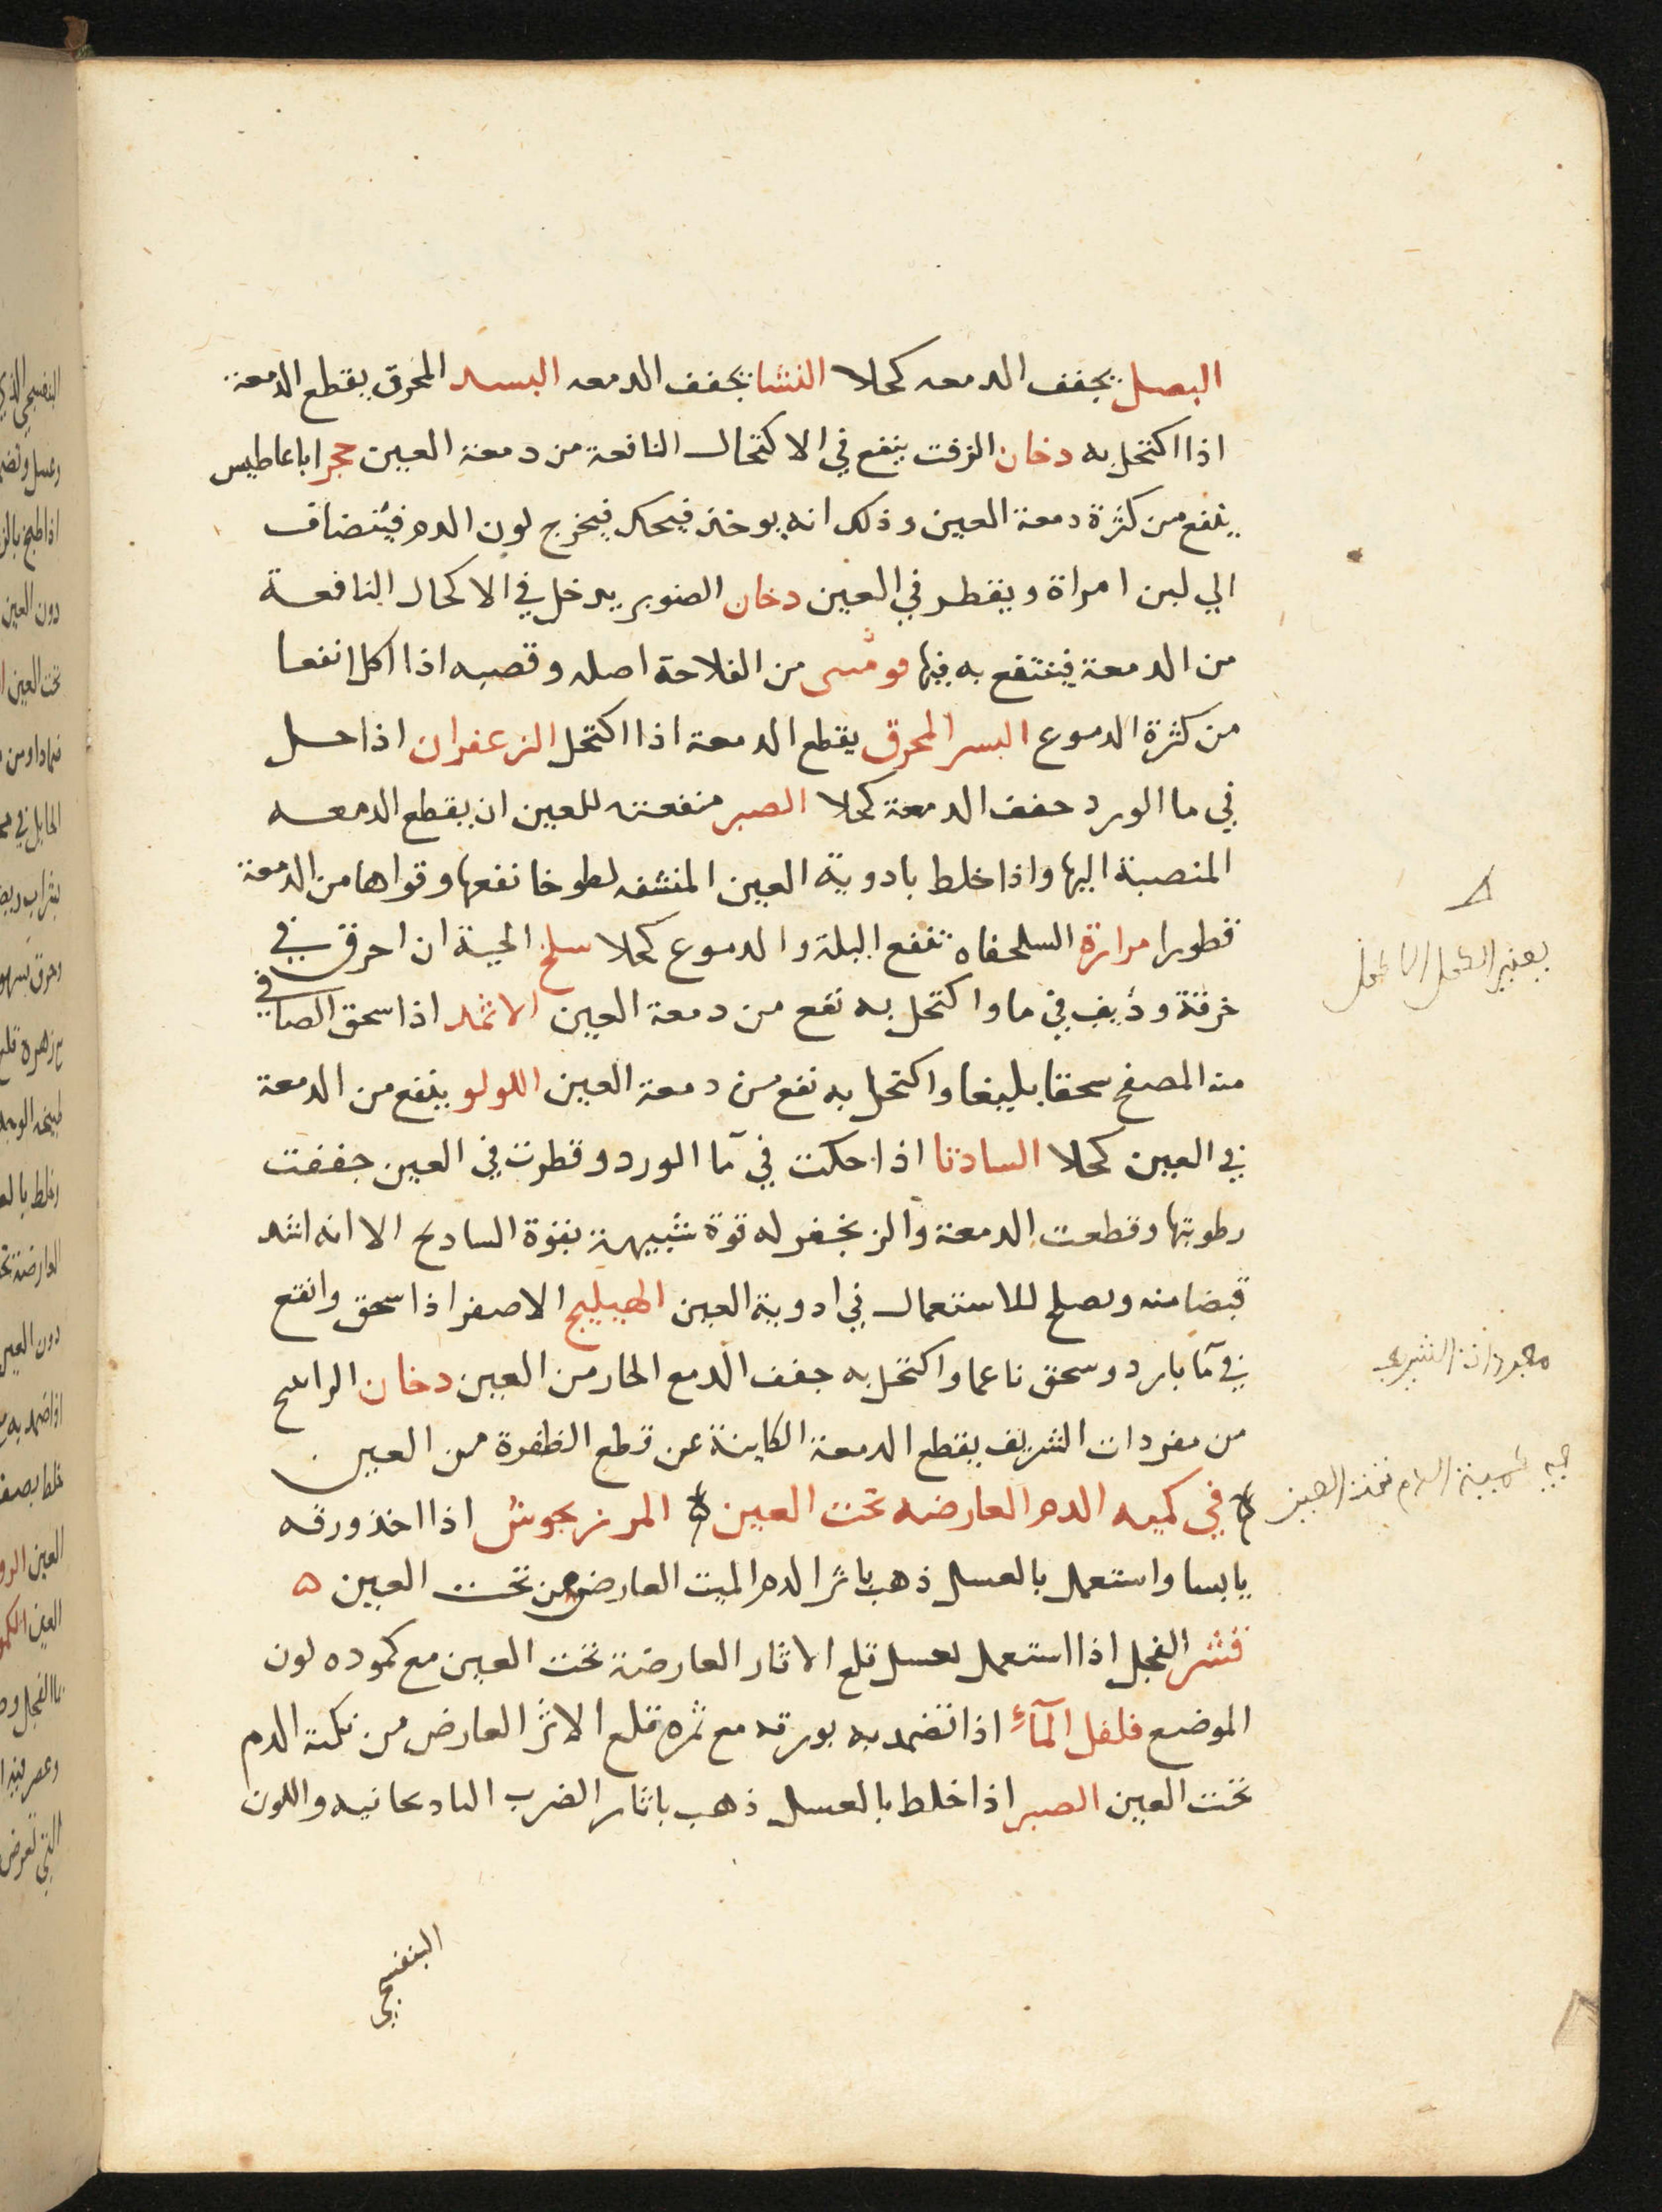 البصل يجفف الدمعه كحلا النشا يجفف الدمعه البسد المحرق يقطع الدمعة
اذا اكتحل به دخان الزفت ينفع في الاكتحال النافعة من دمعة العين حجر اباعاطيس
ينفع من كثرة دمعة العين وذلك انه يوخذ فيحك فيخرج لون الدم فينضاف
الي لبن امراة ويقطر في العين دخان الصنوبر يدخل في الاكحال النافعة
من الدمعة فينتفع به فيها من الفلاحة اصله وقصبه اذا اكل انفعا
من كثرة الدموع البسر المحرق يقطع الدمعة اذا اكتحل الزعفران اذا حل
في ما الورد جفف الدمعة كحلا الصبر منفعته للعين ان يقطع الدمعه
المنصبة اليها واذا خلط بادوية العين المنشفه لطوخا نفعها وقواها من الدمعة
قطورا مرارة السلحفاه تنفع البلة والدموع كحلا سلخ الحية ان احرق في
خرقة وديف في ما واكتحل به نفع من دمعة العين الاثمد اذا سحق الصافي
منه المصفح سحقا بليغا واكتحل به نفع من دمعة العين اللولو ينفع من الدمعة
في العين كحلا السادنا اذا حكت في مآ الورد وقطرت في العين جففت
رطوبتها وقطعت الدمعة والزنجفر له قوة شبيهة بقوة السادنج الا انه اشد
قبضا منه ويصلح للاستعمال في ادوية العين الهيليج الاصفر اذا سحق وانقع
في مآ بارد وسحق ناعما واكتحل به جفف الدمع الحار من العين دخان الراتنج
من مفردات الشريف يقطع الدمعة الكاينة عن قطع الظفرة من العين
في كميه الدم العارضه تحت العين المرزنجوش اذا اخذ ورقه
يابسا واستعمل بالعسل ذهب باثر الدم الميت العارض من تحت العين ه
قشر الفجل اذا استعمل بعسل قلع الاثار العارضة تحت العين مع كموده لون
الموضع فلفل المآء اذا تضمد به بورقه مع ثمره قلع الاثر العارض من نكتة الدم
تحت العين الصبر اذا خلط بالعسل ذهب باثار الضرب البادنجانيه واللون
البنفسجي